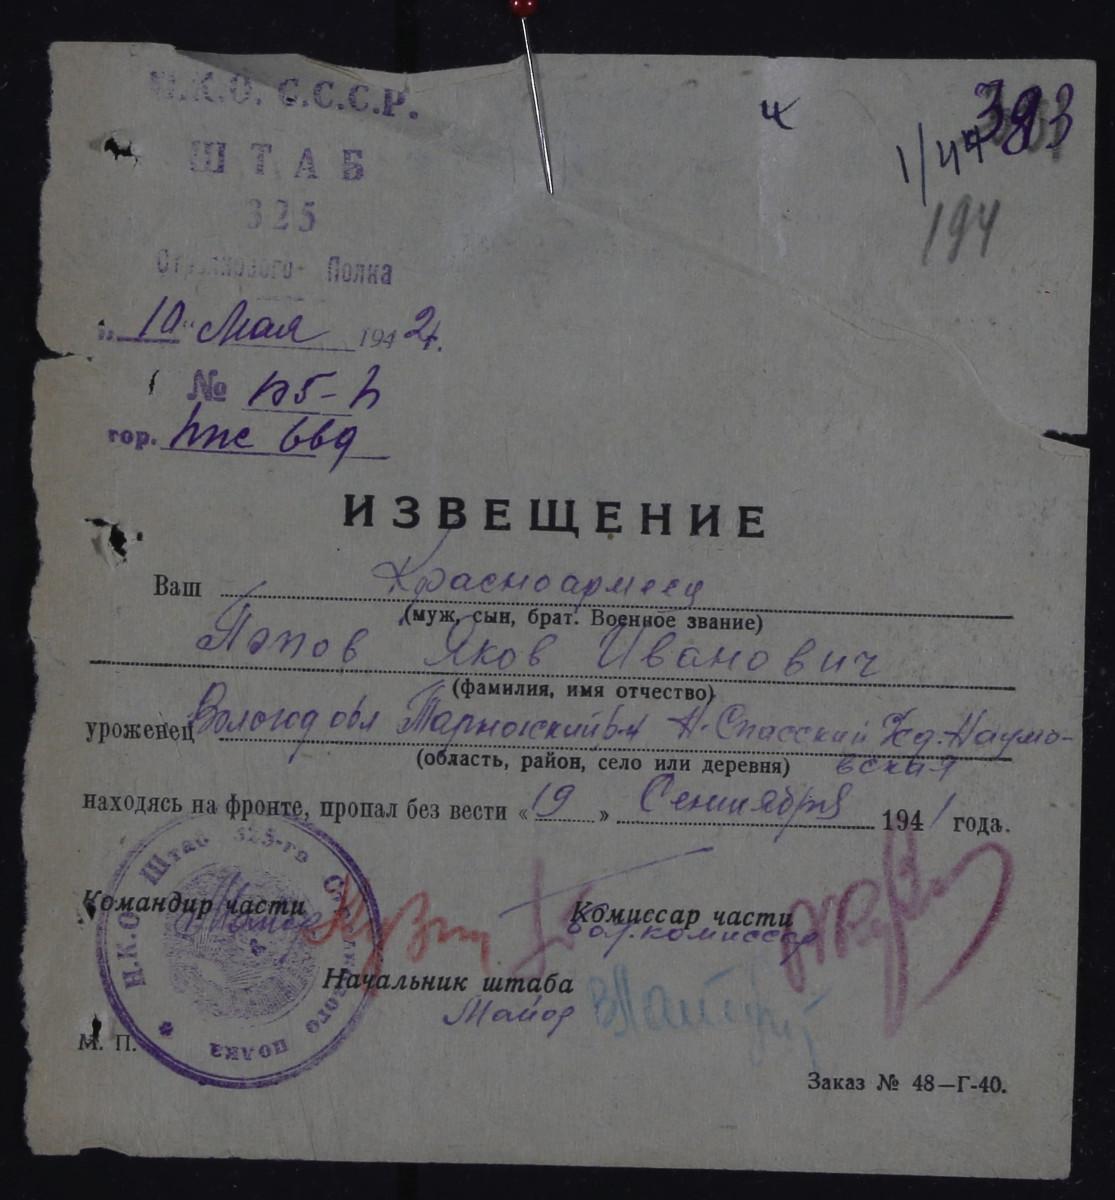 Н.К.О. С.С.С.Р.
ШТАБ
325
Стрелкового Полка
"10" Мая 1942 г.
№
гор. ппс
4
393
1/44
194
ИЗВЕЩЕНИЕ
Ваш Красноармеец
(муж, сын, брат. Военное звание)
Попов Яков Иванович
(фамилия, имя отчество)
уроженец Вологод обл Тарногский р-н Н-Спасский д. Наумо-
(область, район, село или деревня) вская
находясь на фронте, пропал без вести «19» Сентября 1941 года.
Н.К.О. Штаб 325-го Стрелкового полка
Командир части
Комиссар части
Бат. комиссар
Начальник штаба
Майор
М. П.
Заказ № 48—Г-40.